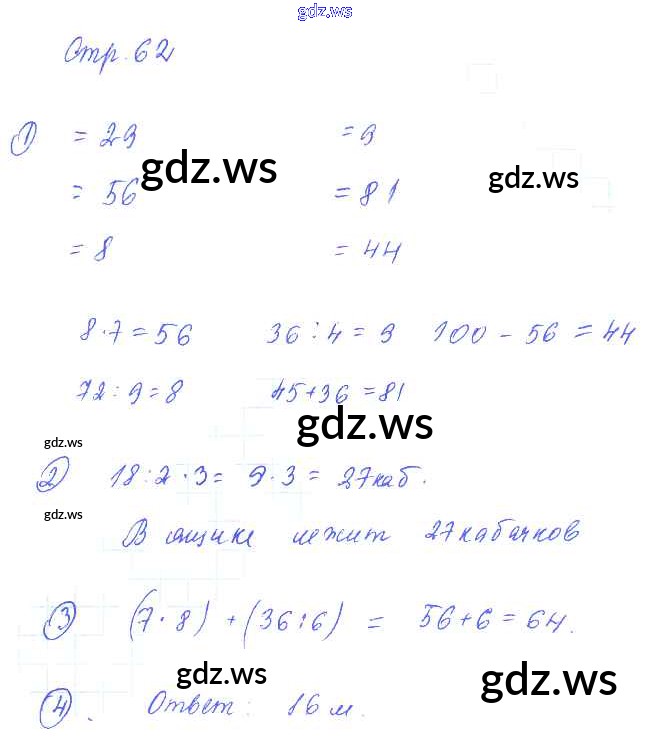 gdz.ws
Стр. 62
1) = 29 = 9
gdz.ws
gdz.ws
= 56 = 81
= 8 = 44
8·7=56 36:4=9 100-56=44
72:9=8 45+36=81
gdz.ws
gdz.ws
2) 18:2·3= 9·3=27каб.
gdz.ws
В ящике лежит 27 кабачков
3) (7·8)+(36:6) = 56+6=64.
gdz.ws
gdz.ws
4). Ответ: 16 м.